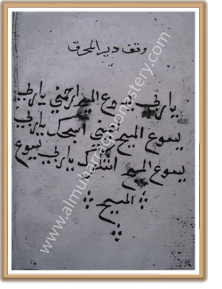 وقف دير المحرق
يا ربي يسوع المسيح ارحمني يا ربي
يسوع المسيح اسبحك يا ربي
يسوع المسيح يا ربي يسوع
المسيح
www.almuharraqmonastery.com